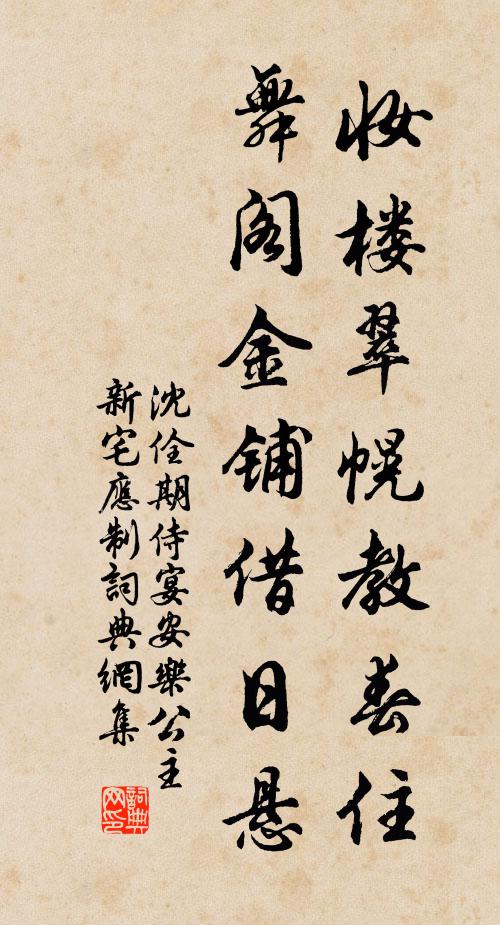 妆楼翠幌教春住
舞阁金铺借日悬
沈佺期侍宴安樂公主
新宅應制詞典網集
詞典
网印